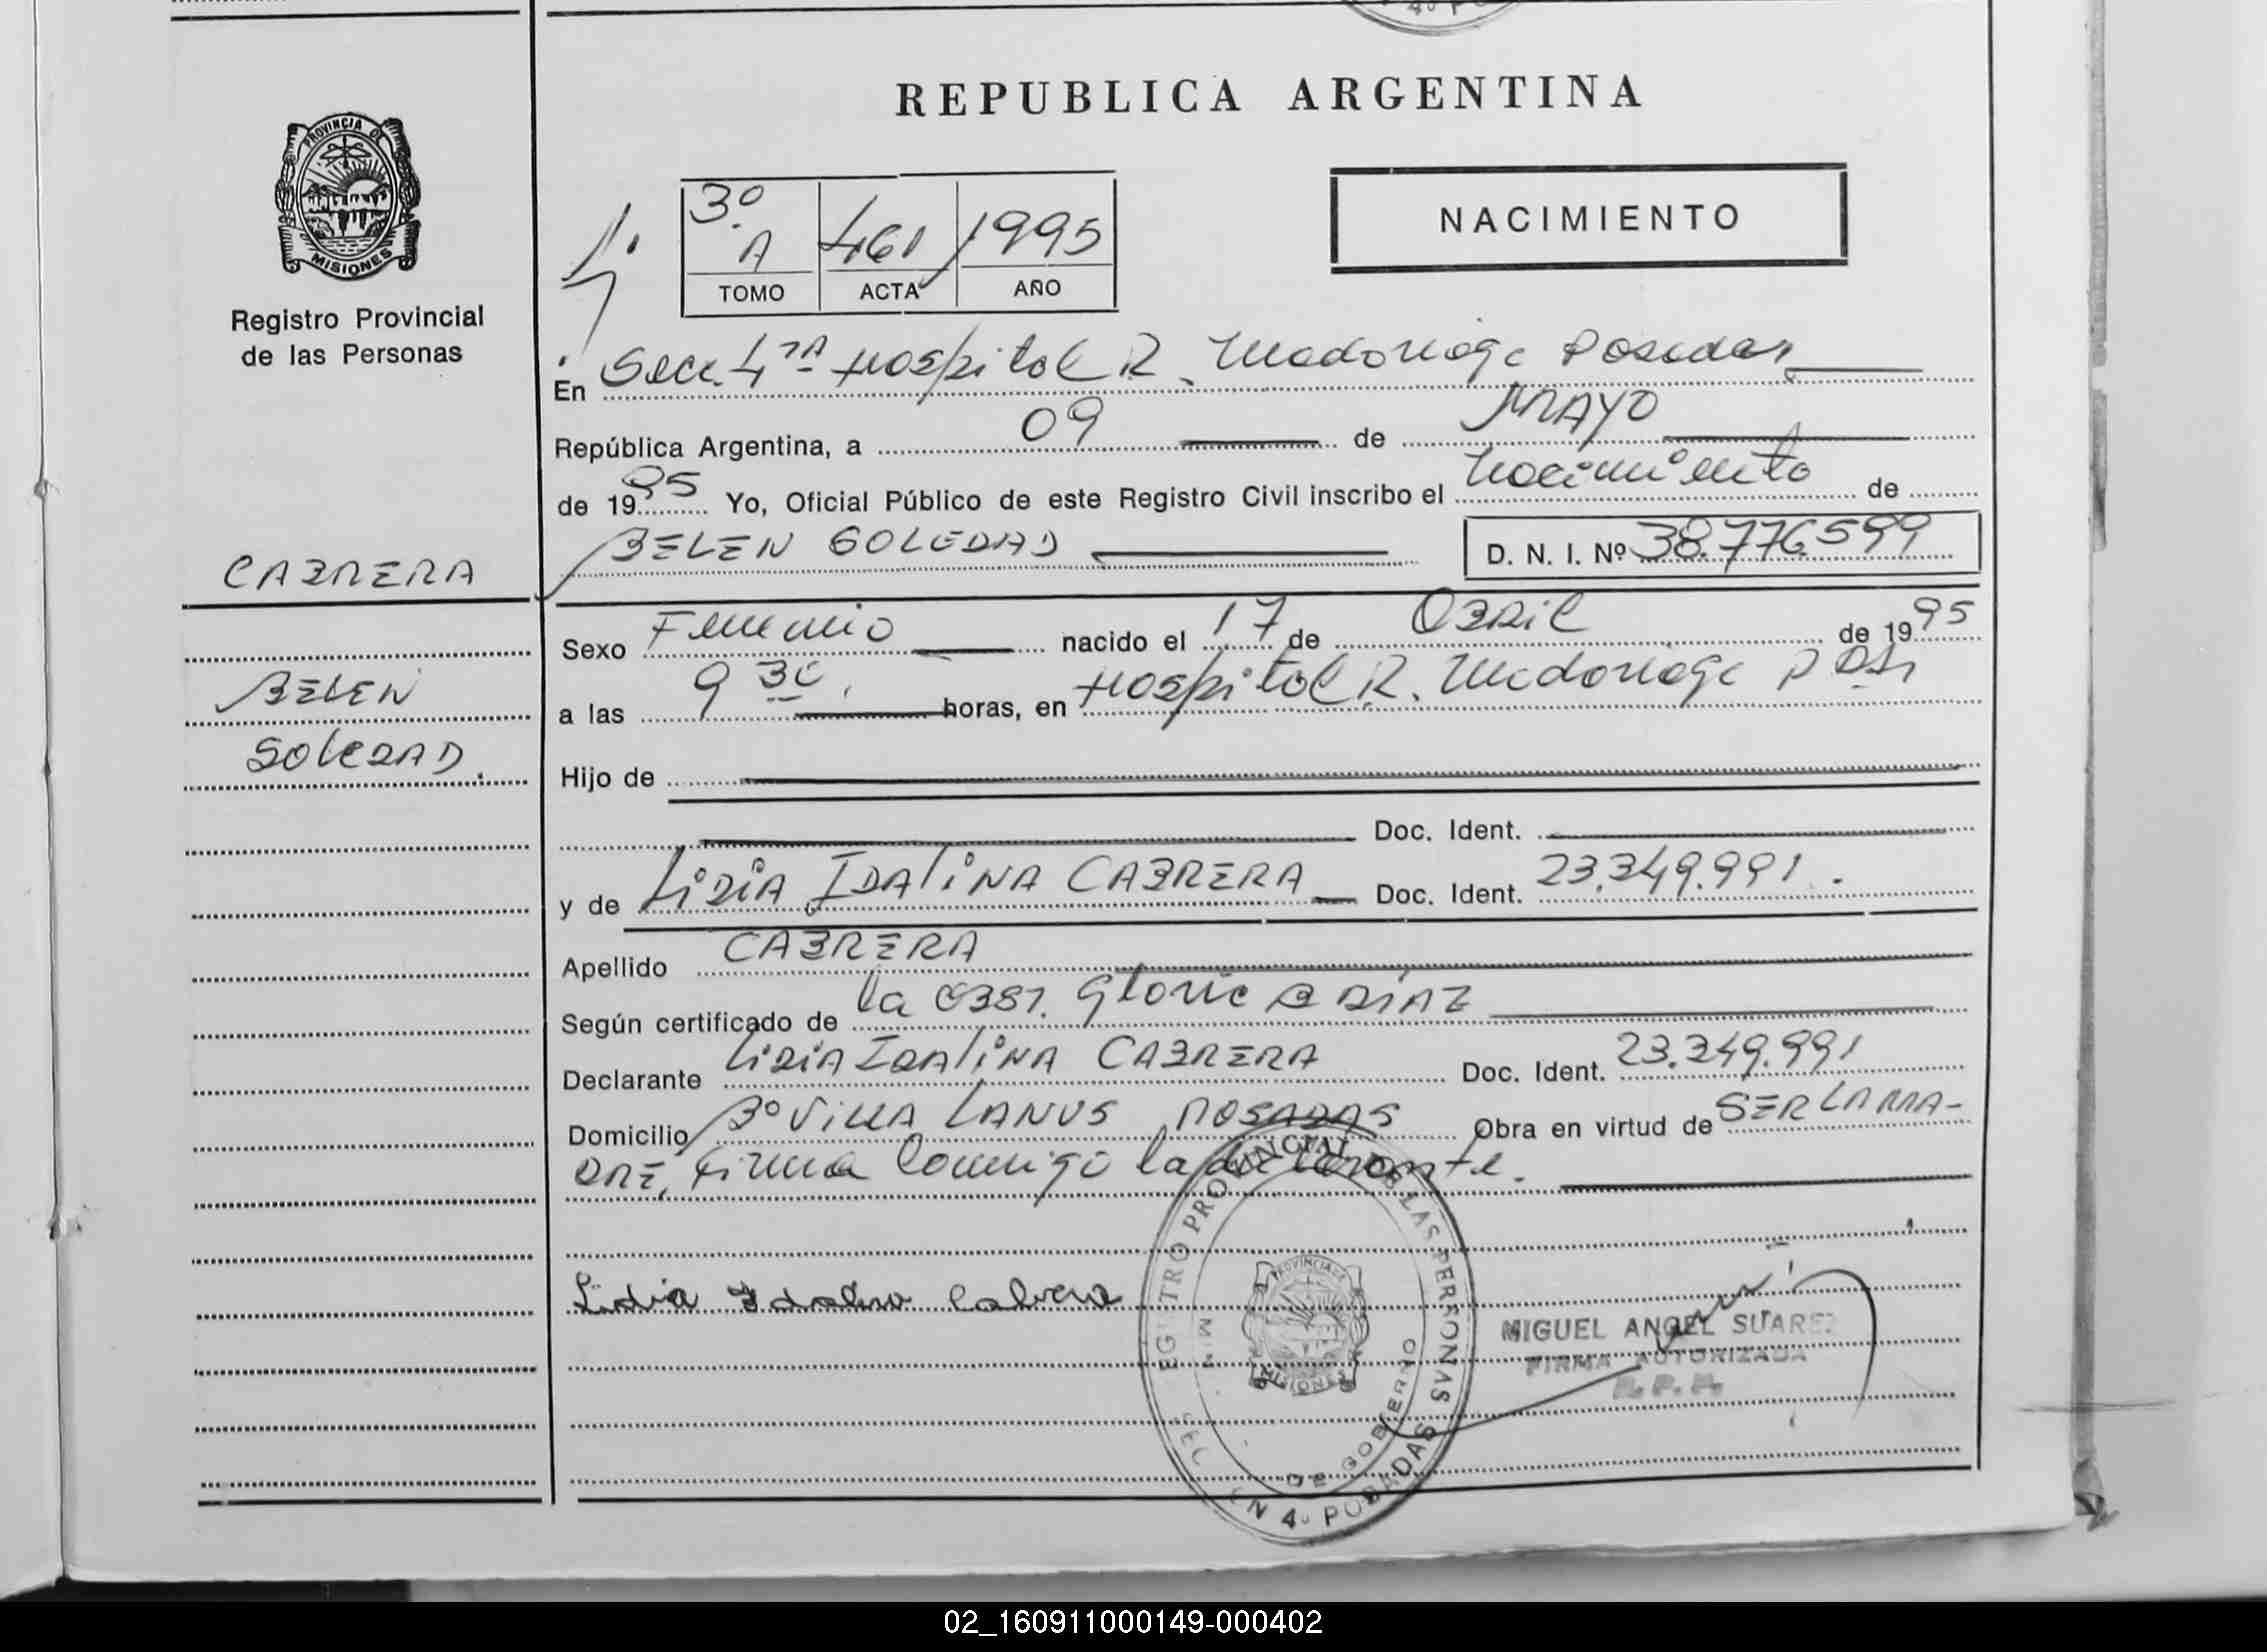 REPUBLICA ARGENTINA
PROVINCIA DE
MISIONES
Registro Provincial
de las Personas
3º A 461 1995
TOMO ACTA AÑO
NACIMIENTO
En Secc. 4ta Hospital R. Madariaga Posadas
República Argentina, a 09 de MAYO
de 1995 Yo, Oficial Público de este Registro Civil inscribo el nacimiento de
BELEN SOLEDAD D. N. I. Nº 38.776.599
CABRERA
BELEN
SOLEDAD.
Sexo Femenino nacido el 17 de ABRIL de 1995
a las 9 30 horas, en Hospital R. Madariaga Pdas
Hijo de
Doc. Ident.
y de LIDIA IDALINA CABRERA Doc. Ident. 23.349.991.
Apellido CABRERA
Según certificado de la OBST. Gloria B DIAZ
Declarante LIDIA IDALINA CABRERA Doc. Ident. 23.349.991
Domicilio Bº VILLA LANUS POSADAS Obra en virtud de SER LA MA-
DRE, firma conmigo la declarante.
Lidia Idalina Cabrera
REGISTRO PROVINCIAL DE LAS PERSONAS
PROVINCIA DE
MISIONES
DE GOBIERNO
4º POSADAS
MIGUEL ANGEL SUAREZ
FIRMA AUTORIZADA
R. P. P.
02_160911000149-000402